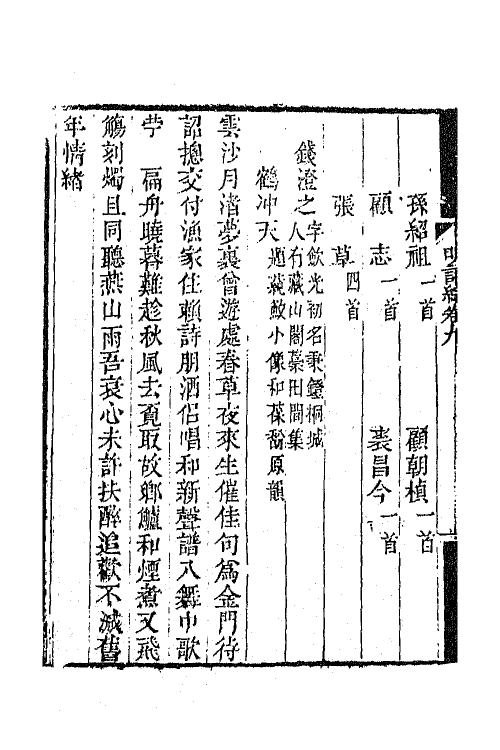 明詞綜卷九
孫紹祖一首 顧朝楨一首
顧志一首 裴昌今一首
張草四首
錢澄之字飲光初名秉鐙桐城人有藏山閣藁田間集
鶴冲天題蓑𥱼小像和葆馚原韻
雲沙月渚夢裏曾遊處春草夜來生催佳句爲金門待
詔摠交付漁家住賴詩朋酒侣唱和新聲譜入舞巾歌
苧 扁舟曉暮難趁秋風去覔取故鄉鱸和煙煮又飛
觴刻燭且同聽燕山雨吾衰心未許扶醉追歡不減舊
年情緒